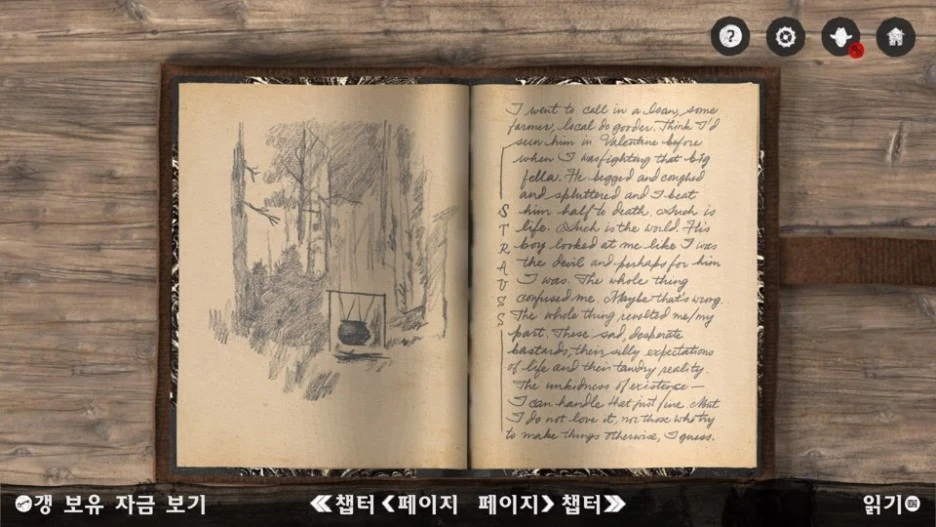 ?
I went to call in a loan, some
farmer, local do gooder. Think I'd
seen him in Valentine before
when I was fighting that big
fella. He begged and coughed
and spluttered and I beat
him half to death. Such is
life. Such is the world. His
boy looked at me like I was
the devil and perhaps for him
I was. The whole thing
confused me. Maybe that's wrong.
The whole thing revolted me/my
part. These sad, desperate
bastards, their silly expectations
of life and their tawdry reality.
The unkidness of existence —
I can handle that just fine. But
I do not love it, nor those who try
to make things otherwise, I guess.
STRAUSS
갱 보유 자금 보기
챕터 페이지 페이지 챕터
읽기